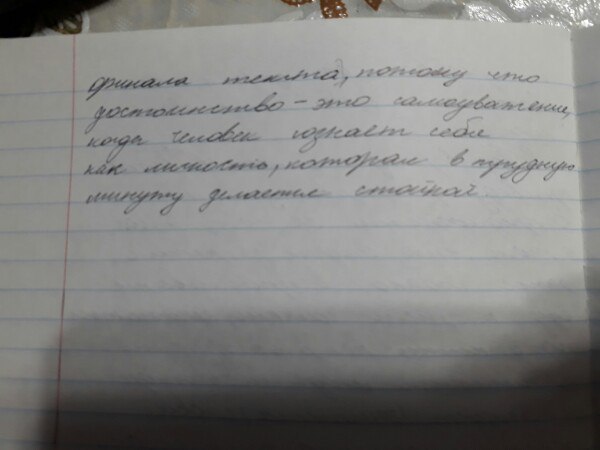 финала текста, потому что
достоинство - это самоуважение,
когда человек узнает себя
как личность, которая в трудную
минуту делается стойкой.